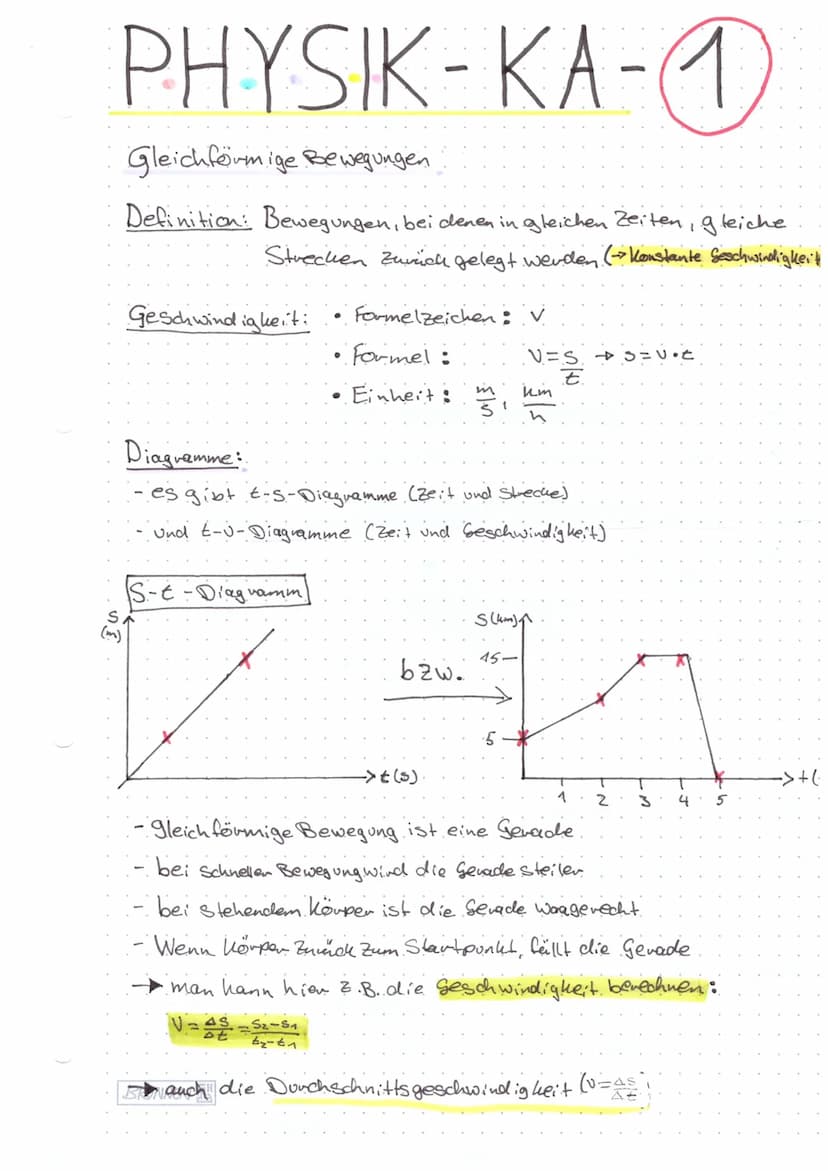 PHYSIK-KA-1
Gleichförmige Bewegungen
Definition: Bewegungen, bei denen in gleichen Zeiten, gleiche
Strecken zurück gelegt werden (→ Konstante Geschwindigkeit
Geschwindigkeit: • Formelzeichen: v
• Formel: v = s/t → s = v • t
• Einheit: m/s, km/h
Diagramme:
- es gibt t-s-Diagramme (Zeit und Strecke)
- und t-v-Diagramme (Zeit und Geschwindigkeit)
S-t-Diagramm
S (m)
t (s)
bzw.
S (km)
15
5
1 2 3 4 5
t (
- gleichförmige Bewegung ist eine Gerade
- bei schneller Bewegung wird die Gerade steiler
- bei stehendem Körper ist die Gerade waagerecht
- Wenn Körper zurück zum Startpunkt, fällt die Gerade
→ man kann hier z.B. die Geschwindigkeit berechnen:
V = ΔS/Δt = S2-S1/t2-t1
→ auch die Durchschnittsgeschwindigkeit (v = Δs/Δt)